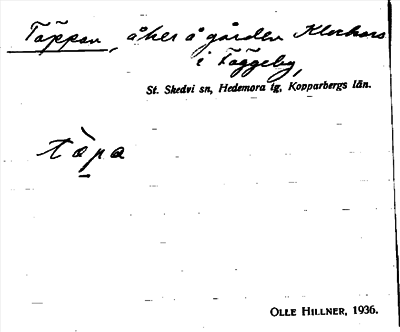 Täppan, åker å gården Klockars
i Fäggeby,
St. Skedvi sn, Hedemora tg, Kopparbergs län.
tàpa
OLLE HILLNER, 1936.